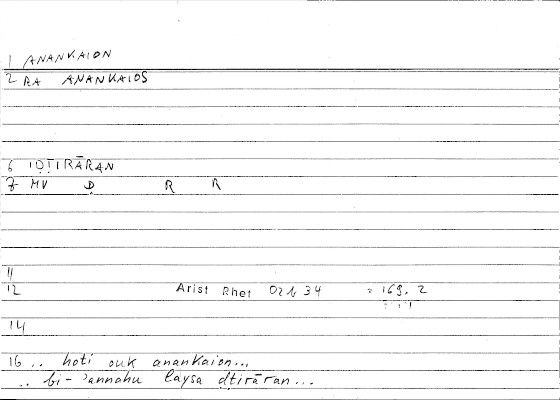 1 ANANKAION
2 RA ANANKAIOS
6 IḌṬIRĀRAN
7 MV Ḍ R R
11
12 Arist Rhet 02b 34 = 169, 2
14
16 .. hoti ouk anankaion...
.. bi-ʾannahu laysa ḍṭirāran...